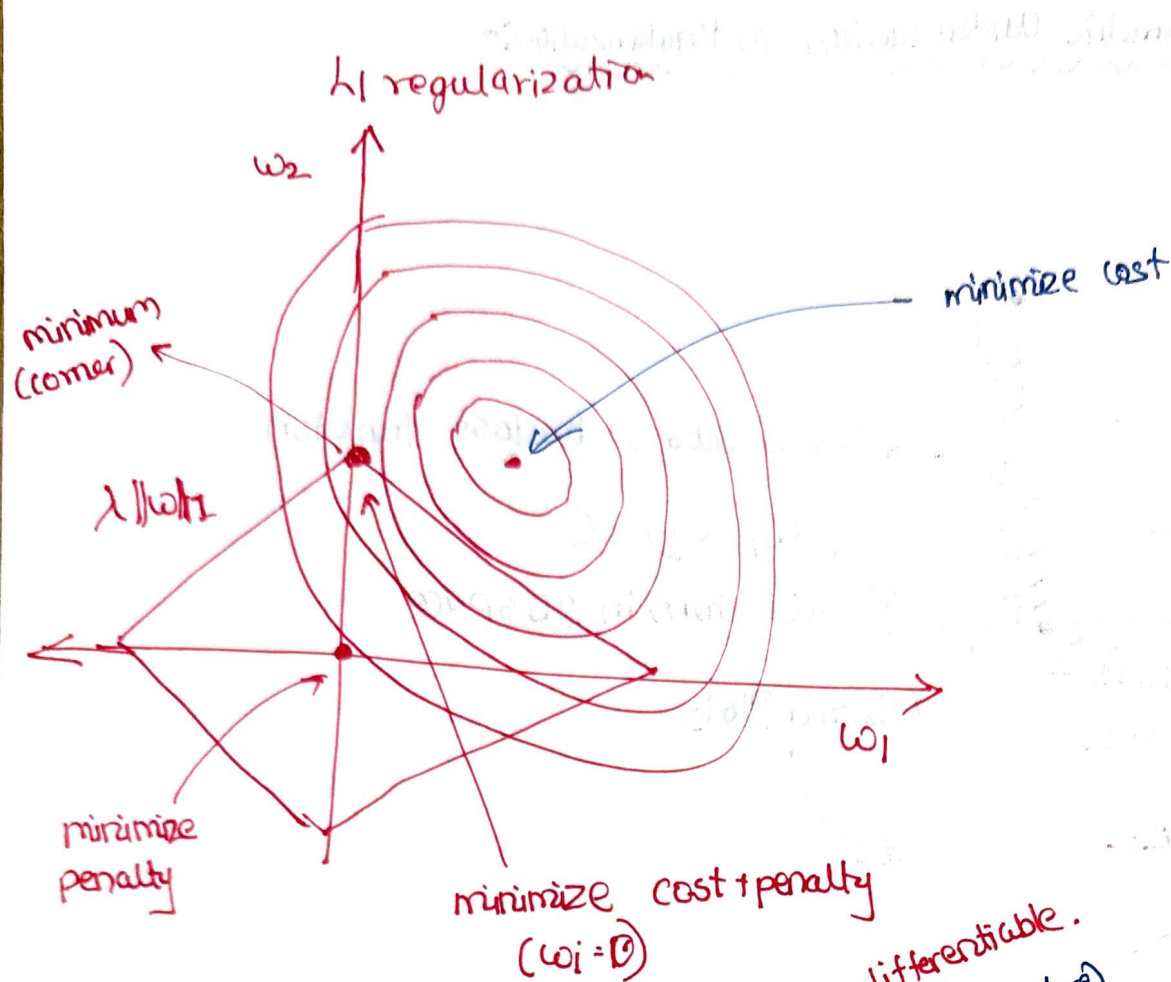 L1 regularization
w2
minimize cost
minimum
(corner)
λ||w||1
w1
minimize
penalty
minimize cost + penalty
(wi = 0)
differentiable.